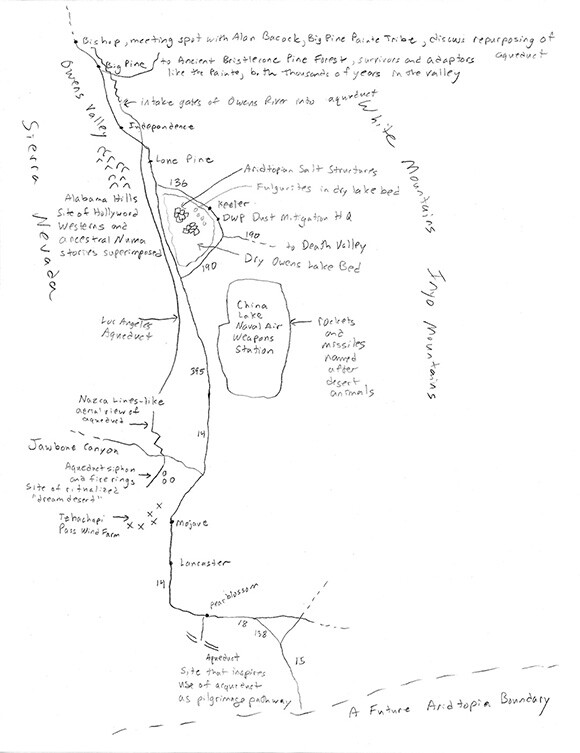 Bishop, meeting spot with Alan Bacock, Big Pine Paiute Tribe, discuss repurposing of
aqueduct
Big Pine
to Ancient Bristlecone Pine Forest, survivors and adaptors
like the Paiute, both thousands of years in the valley
Owens Valley
intake gates of Owens River into aqueduct
White Mountains
Independence
Sierra Nevada
Lone Pine
136
Aridtopian Salt Structures
Fulgurites in dry lake bed
Keeler
DWP Dust Mitigation HQ
190
to Death Valley
Dry Owens Lake Bed
190
Alabama Hills
Site of Hollywood
Westerns and
ancestral Numa
stories superimposed
Inyo Mountains
China
Lake
Naval Air
Weapons
Station
rockets
and
missiles
named
after
desert
animals
Los Angeles
Aqueduct
395
Nazca Lines-like
aerial view of
aqueduct
14
Jawbone Canyon
Aqueduct siphon
and fire rings
Site of ritualized
"dream desert"
Tehachapi
Pass Wind Farm
Mojave
Lancaster
14
pearblossom
18
138
15
Aqueduct
Site that inspires
use of aqueduct
as pilgrimage pathway
A Future Aridtopia Boundary